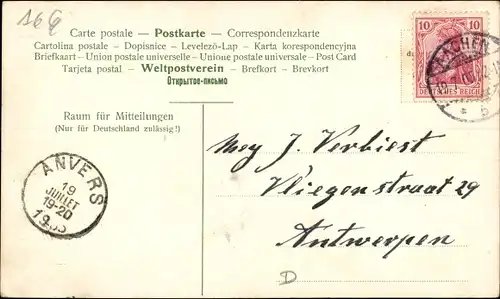 166
Carte postale — Postkarte — Correspondenzkarte
Cartolina postale - Dopisnice - Levelezö-Lap - Karta korespondencyjna
Briefkaart - Union postale universelle - Unione postale universale - Post Card
Tarjeta postal - Weltpostverein - Brefkort - Brevkort
Открытое-письмо
10 10
DEUTSCHES REICH
AACHEN
Raum für Mitteilungen
(Nur für Deutschland zulässig!)
ANVERS
19
JUILLET
19-20
Mej J. Verbiest
Vliegenstraat 29
Antwerpen
D